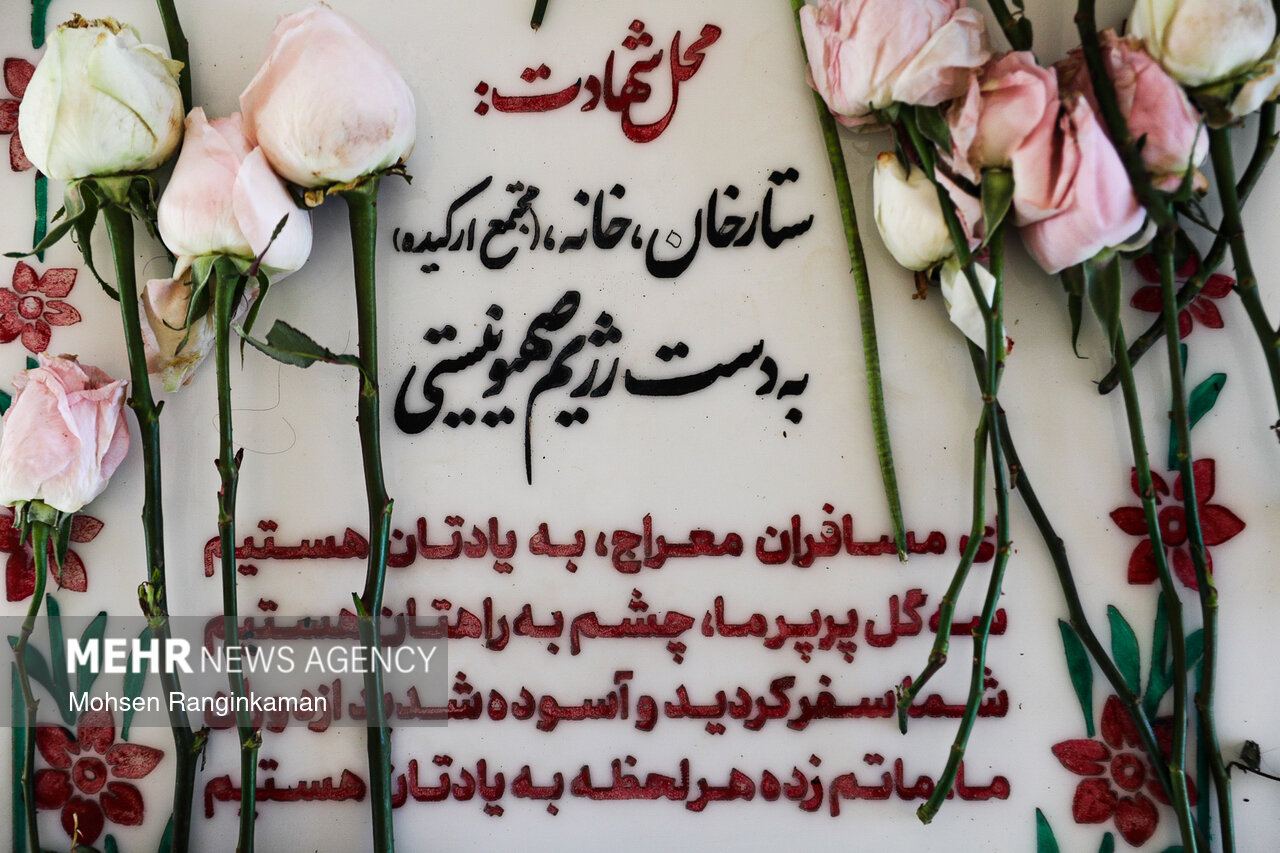 محل شهادت:
ستارخان، خانه، (مجتمع ارکیده)
به دست رژیم صهیونیستی
مسافران معراج، به یادتان هستیم
سه گل پرپر ما، چشم به راهتان هستیم
شما سفر کردید و آسوده شدید از دوران
ما ماتم زده هر لحظه به یادتان هستیم
MEHR NEWS AGENCY
Mohsen Ranginkaman